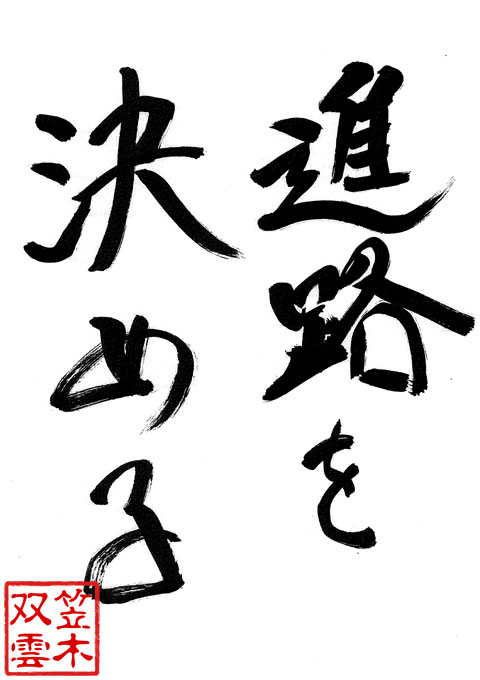 進路を
決める
笠木
双雲